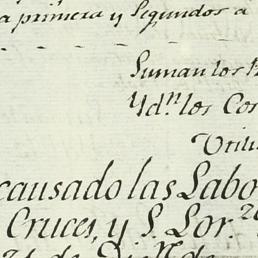 a primera y Segundos a
Suman los
Yd.n los Cor
Utili
causado las Labo
Cruces, y S. Lor.zo
de